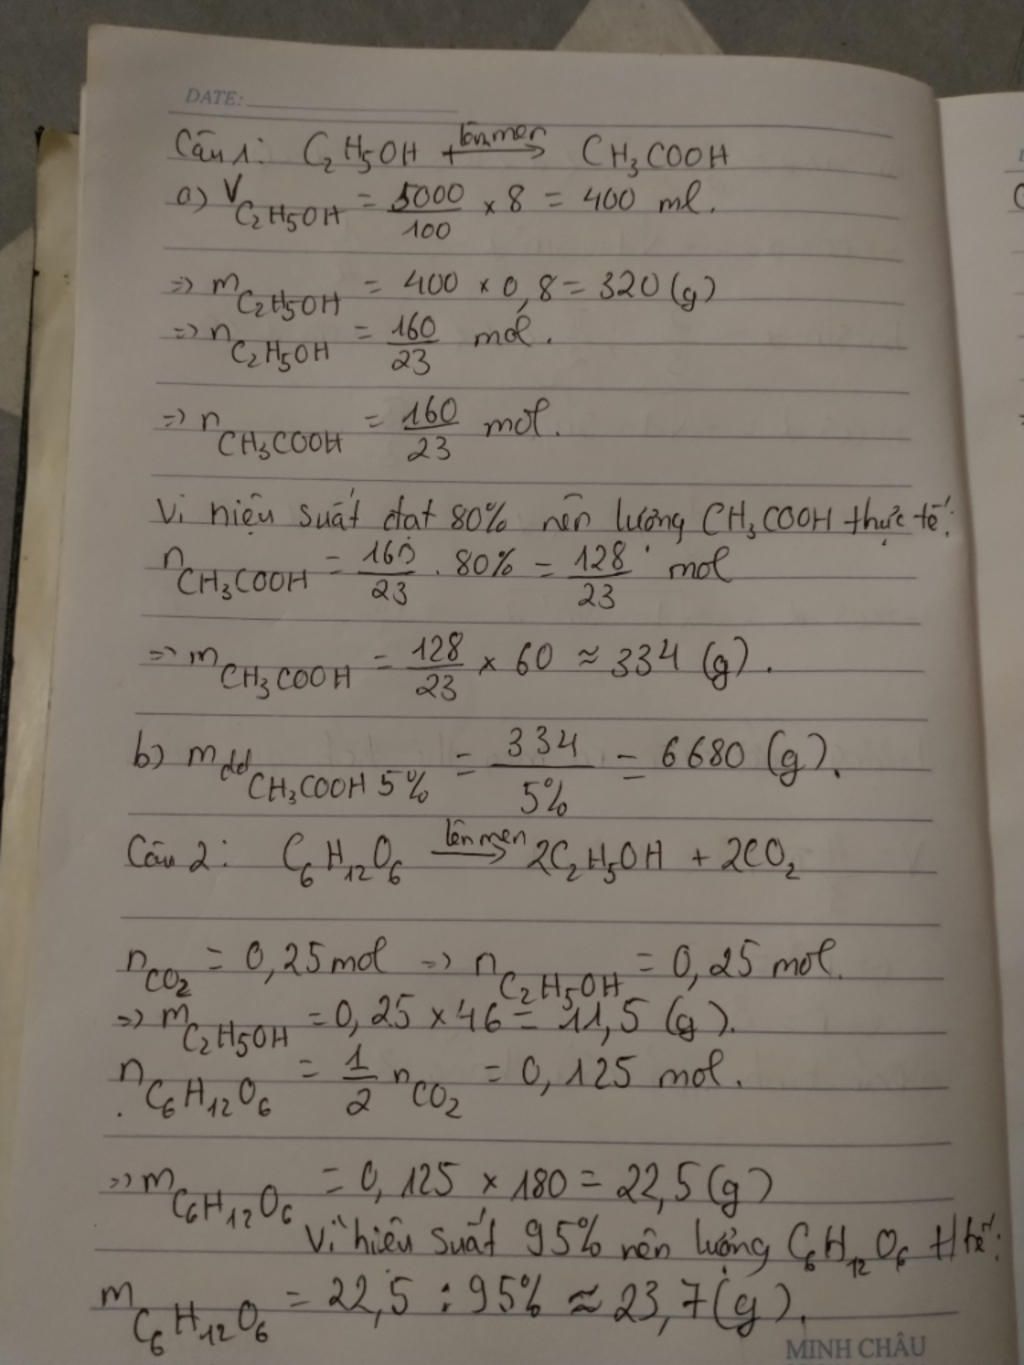 DATE:
Câu 1: C₂H₅OH + lên men → CH₃COOH
a) V C₂H₅OH = 5000/100 × 8 = 400 ml.
=> m C₂H₅OH = 400 × 0,8 = 320 (g)
=> n C₂H₅OH = 160/23 mol.
=> n CH₃COOH = 160/23 mol.
Vì hiệu suất đạt 80% nên lượng CH₃COOH thực tế:
n CH₃COOH = 160/23 . 80% = 128/23 mol
=> m CH₃COOH = 128/23 × 60 ≈ 334 (g).
b) m dd CH₃COOH 5% = 334/5% = 6680 (g).
Câu 2: C₆H₁₂O₆ lên men → 2C₂H₅OH + 2CO₂
n CO₂ = 0,25 mol => n C₂H₅OH = 0,25 mol.
=> m C₂H₅OH = 0,25 × 46 = 11,5 (g).
n C₆H₁₂O₆ = 1/2 n CO₂ = 0,125 mol.
=> m C₆H₁₂O₆ = 0,125 × 180 = 22,5 (g)
Vì hiệu suất 95% nên lượng C₆H₁₂O₆ ttế:
m C₆H₁₂O₆ = 22,5 : 95% ≈ 23,7 (g).
MINH CHÂU